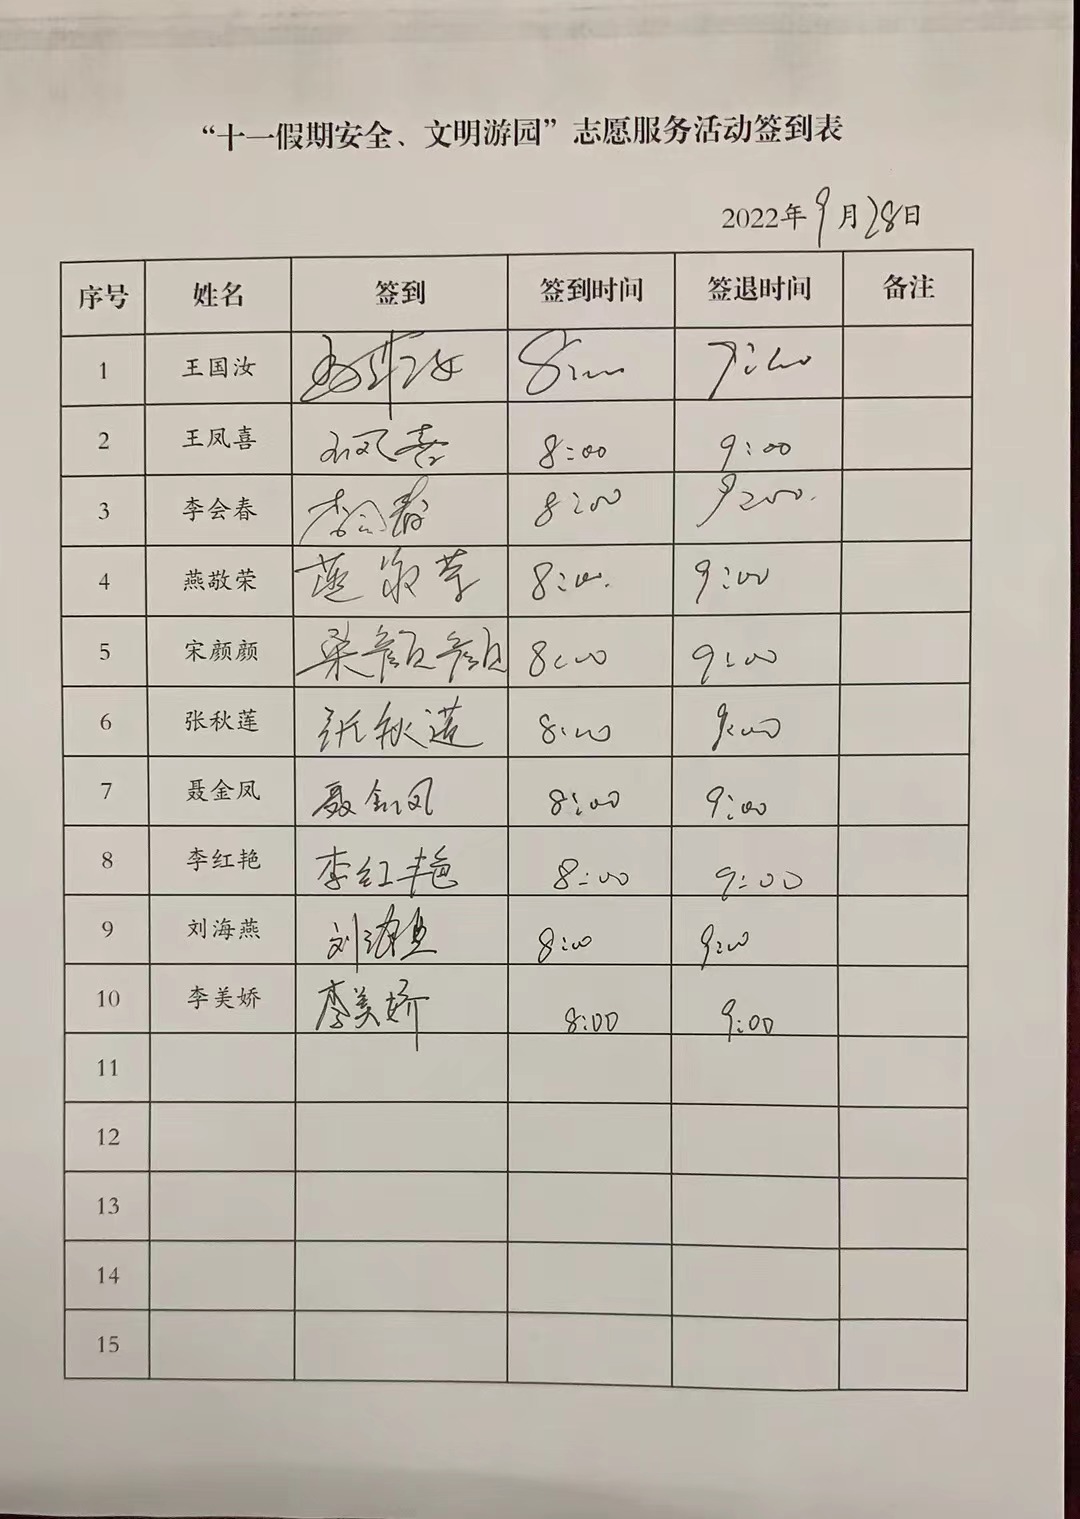 “十一假期安全、文明游园”志愿服务活动签到表
2022年9月28日
序号 姓名 签到 签到时间 签退时间 备注
1 王国汝 8:00 9:00
2 王凤喜 王凤喜 8:00 9:00
3 李会春 李会春 8:00 9:00
4 燕敬荣 燕敬荣 8:00 9:00
5 宋颜颜 宋颜颜 8:00 9:00
6 张秋莲 张秋莲 8:00 9:00
7 聂金凤 聂金凤 8:00 9:00
8 李红艳 李红艳 8:00 9:00
9 刘海燕 刘海燕 8:00 9:00
10 李美娇 李美娇 8:00 9:00
11
12
13
14
15